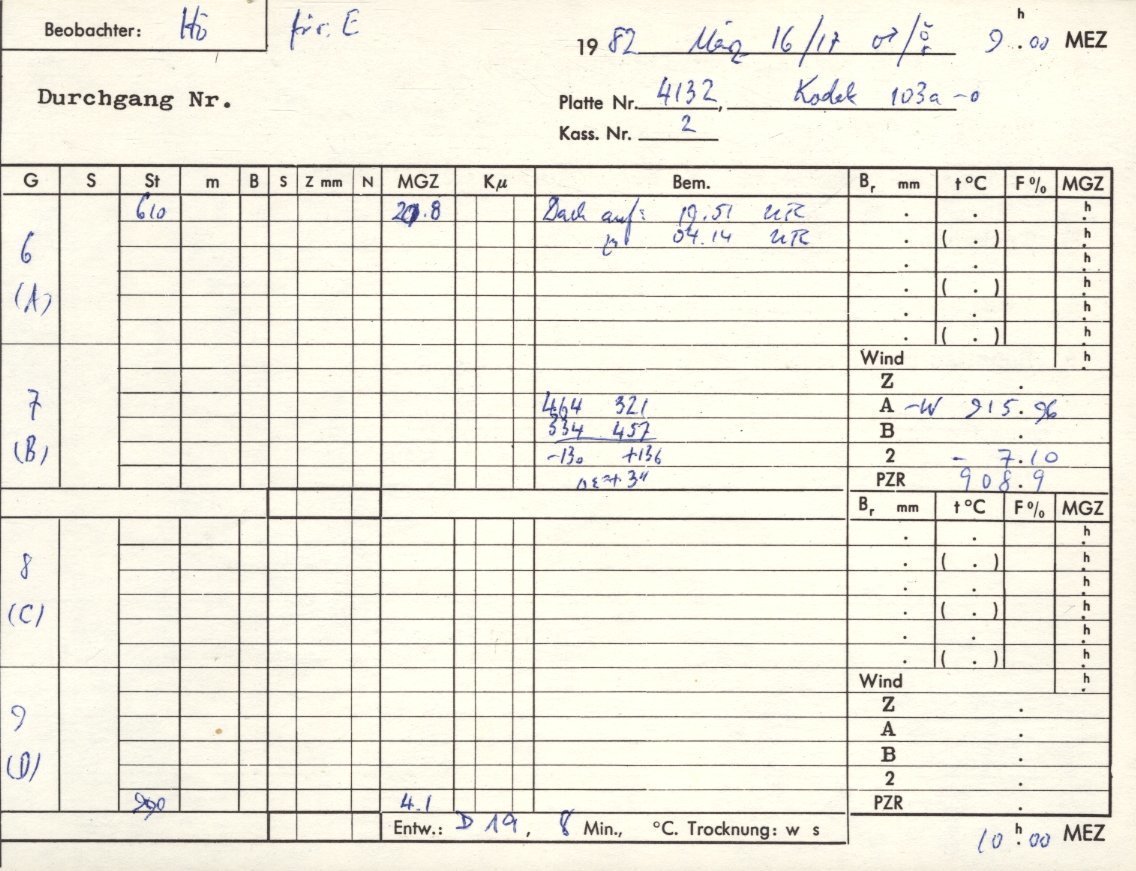 Beobachter: Hö für E
1982 März 16/17 ♂/☿ 9 h . 00 MEZ
Durchgang Nr.
Platte Nr. 4132, Kodak 103a-o
Kass. Nr. 2
G S St m B S Z mm N MGZ Kμ Bem. Br mm t °C F % MGZ
610 Dach auf: 19.51 . . h
6 04.14 . ( . ) h
(A) . . h
. ( . ) h
. . h
. ( . ) h
Wind h
Z .
7 464 321 A -W 915.96
334 457 B .
(B) -130 +136 2 - 7.10
PZR 908.9
Br mm t °C F % MGZ
. . h
8 . ( . ) h
. . h
(C) . ( . ) h
. . h
. ( . ) h
Wind h
9 Z .
A .
(D) B .
2 .
4.1 PZR .
Entw.: D 19, 8 Min., °C. Trocknung: w s
10 h . 00 MEZ